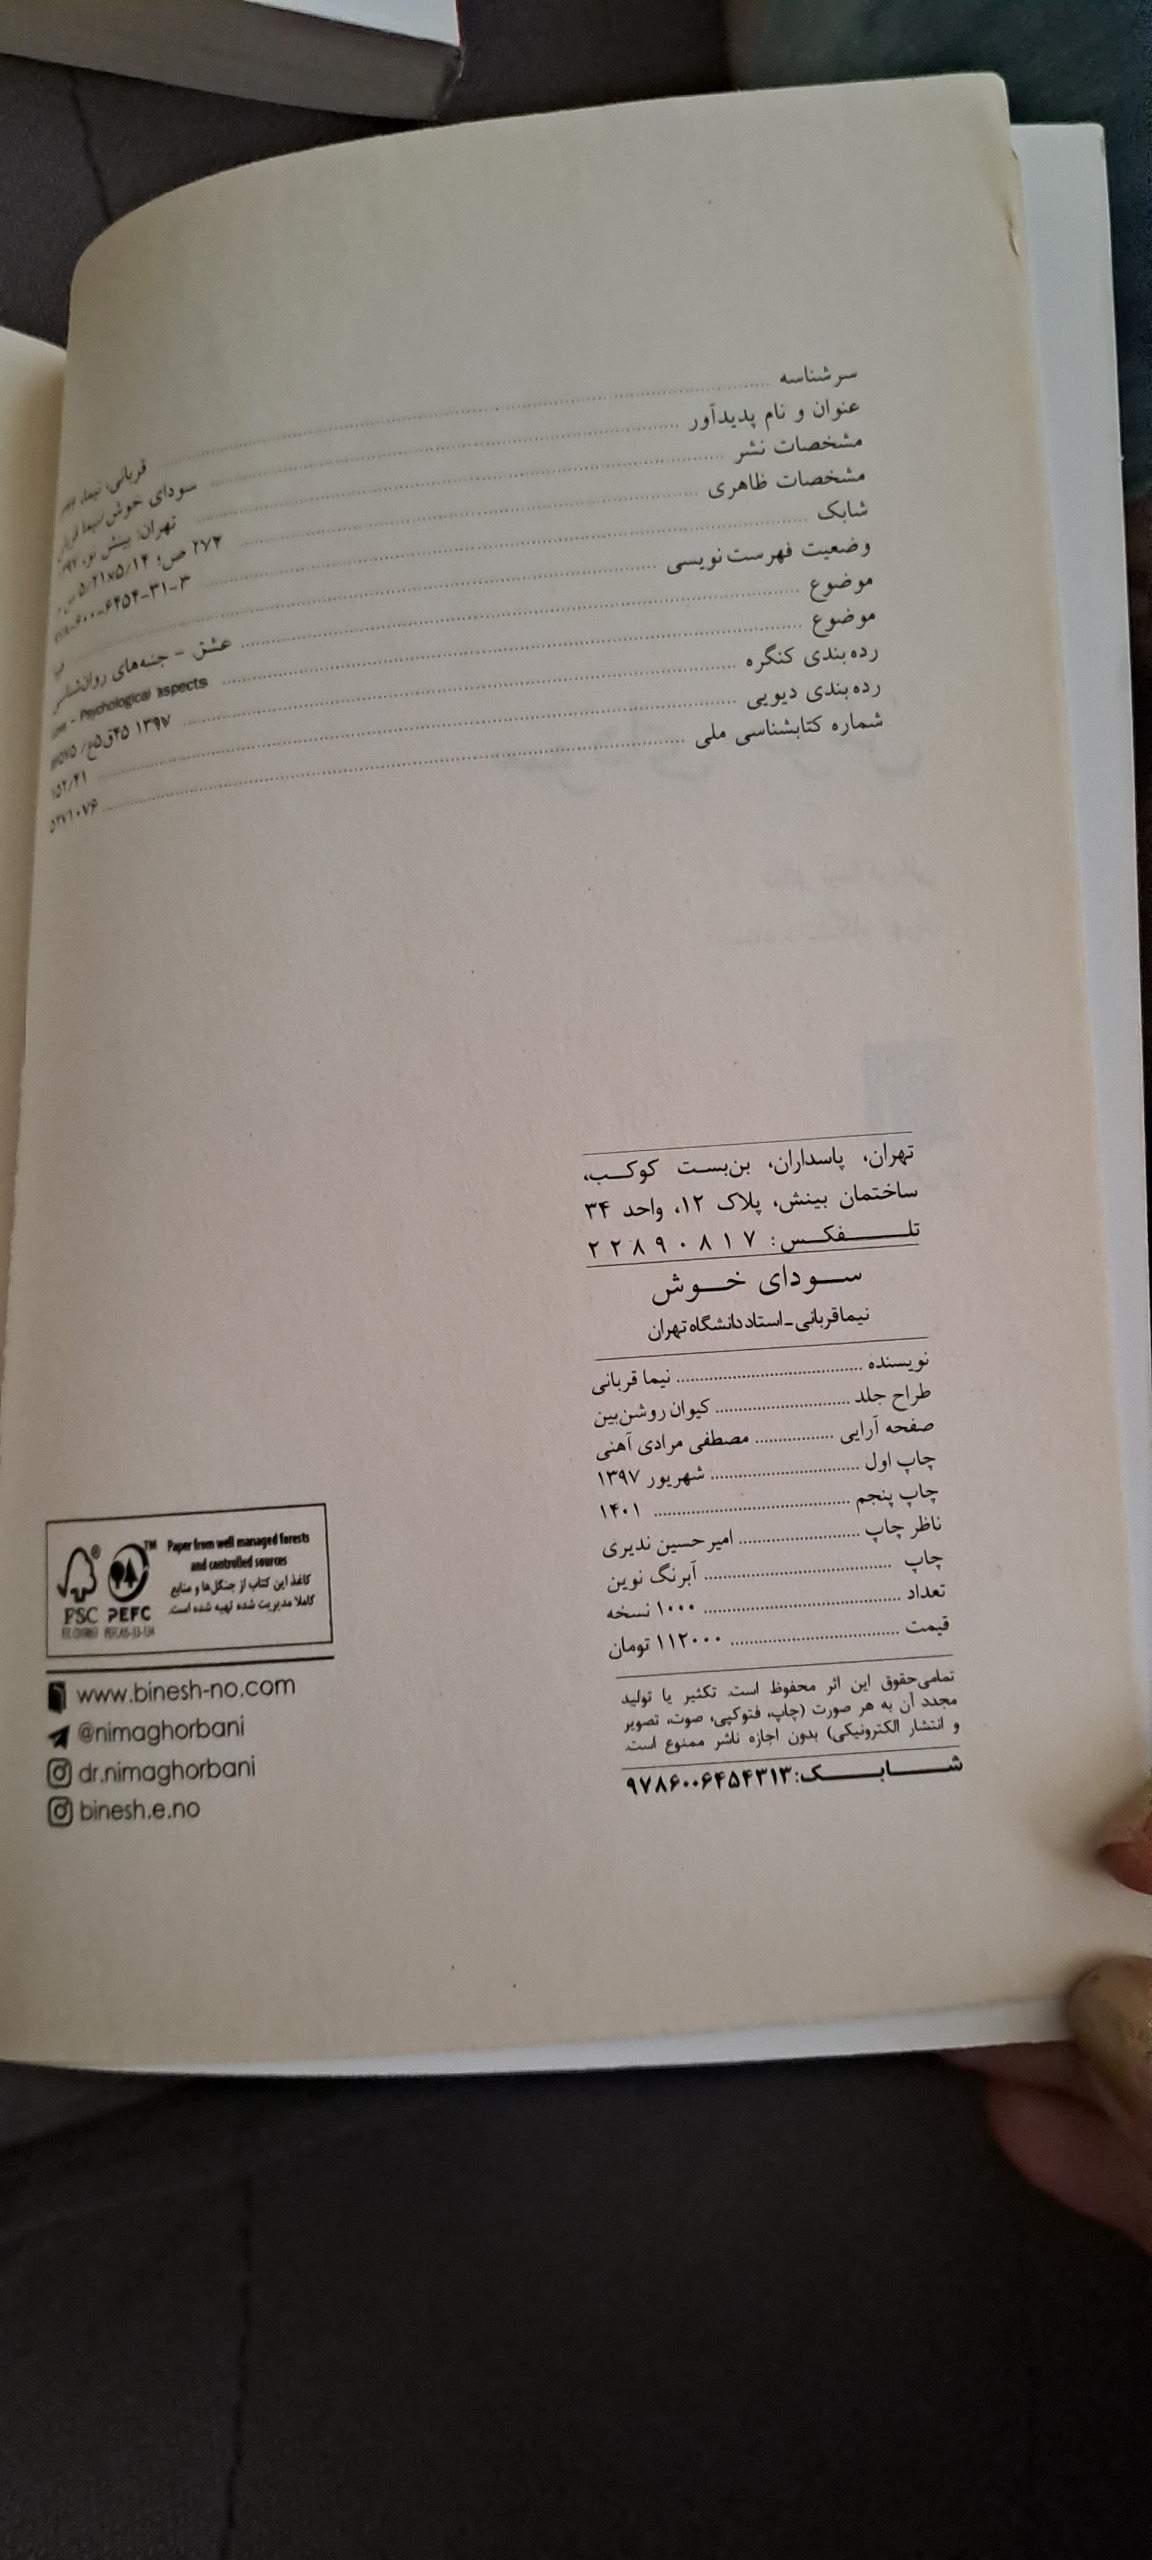 سرشناسه ........ قربانی، نیما،
عنوان و نام پدیدآور ........ سودای خوش/نیما
مشخصات نشر ........ تهران: بینش نو،
مشخصات ظاهری ........ ۲۷۲ ص؛ ۵/۲۱×۵/۱۴
شابک ........ ۶۰۰-۶۴۵۴-۳۱-۳
وضعیت فهرست‌نویسی ........
موضوع ........ عشق - جنبه‌های
موضوع ........ - Psychological aspects
رده‌بندی کنگره ........ ۱۳۹۷ ۴۵ق۵ع/
رده‌بندی دیویی ........ ۱۵۲/۴۱
شماره کتابشناسی ملی ........ ۵۲۷۱۰۷۶
تهران، پاسداران، بن‌بست کوکب،
ساختمان بینش، پلاک ۱۲، واحد ۳۴
تلفکس: ۲۲۸۹۰۸۱۷
سودای خوش
نیما قربانی-استاد دانشگاه تهران
نویسنده ........ نیما قربانی
طراح جلد ........ کیوان روشن‌بین
صفحه آرایی ........ مصطفی مرادی آهنی
چاپ اول ........ شهریور ۱۳۹۷
چاپ پنجم ........ ۱۴۰۱
ناظر چاپ ........ امیرحسین ندیری
چاپ ........ آبرنگ نوین
تعداد ........ ۱۰۰۰ نسخه
قیمت ........ ۱۱۲۰۰۰ تومان
تمامی‌حقوق این اثر محفوظ است. تکثیر یا تولید
مجدد آن به هر صورت (چاپ، فتوکپی، صوت، تصویر
و انتشار الکترونیکی) بدون اجازه ناشر ممنوع است.
شابک: ۹۷۸۶۰۰۶۴۵۴۳۱۳
Paper from well managed forests
and controlled sources
کاغذ این کتاب از جنگل‌ها و منابع
کاملا مدیریت شده تهیه شده است.
FSC PEFC
www.binesh-no.com
@nimaghorbani
dr.nimaghorbani
binesh.e.no